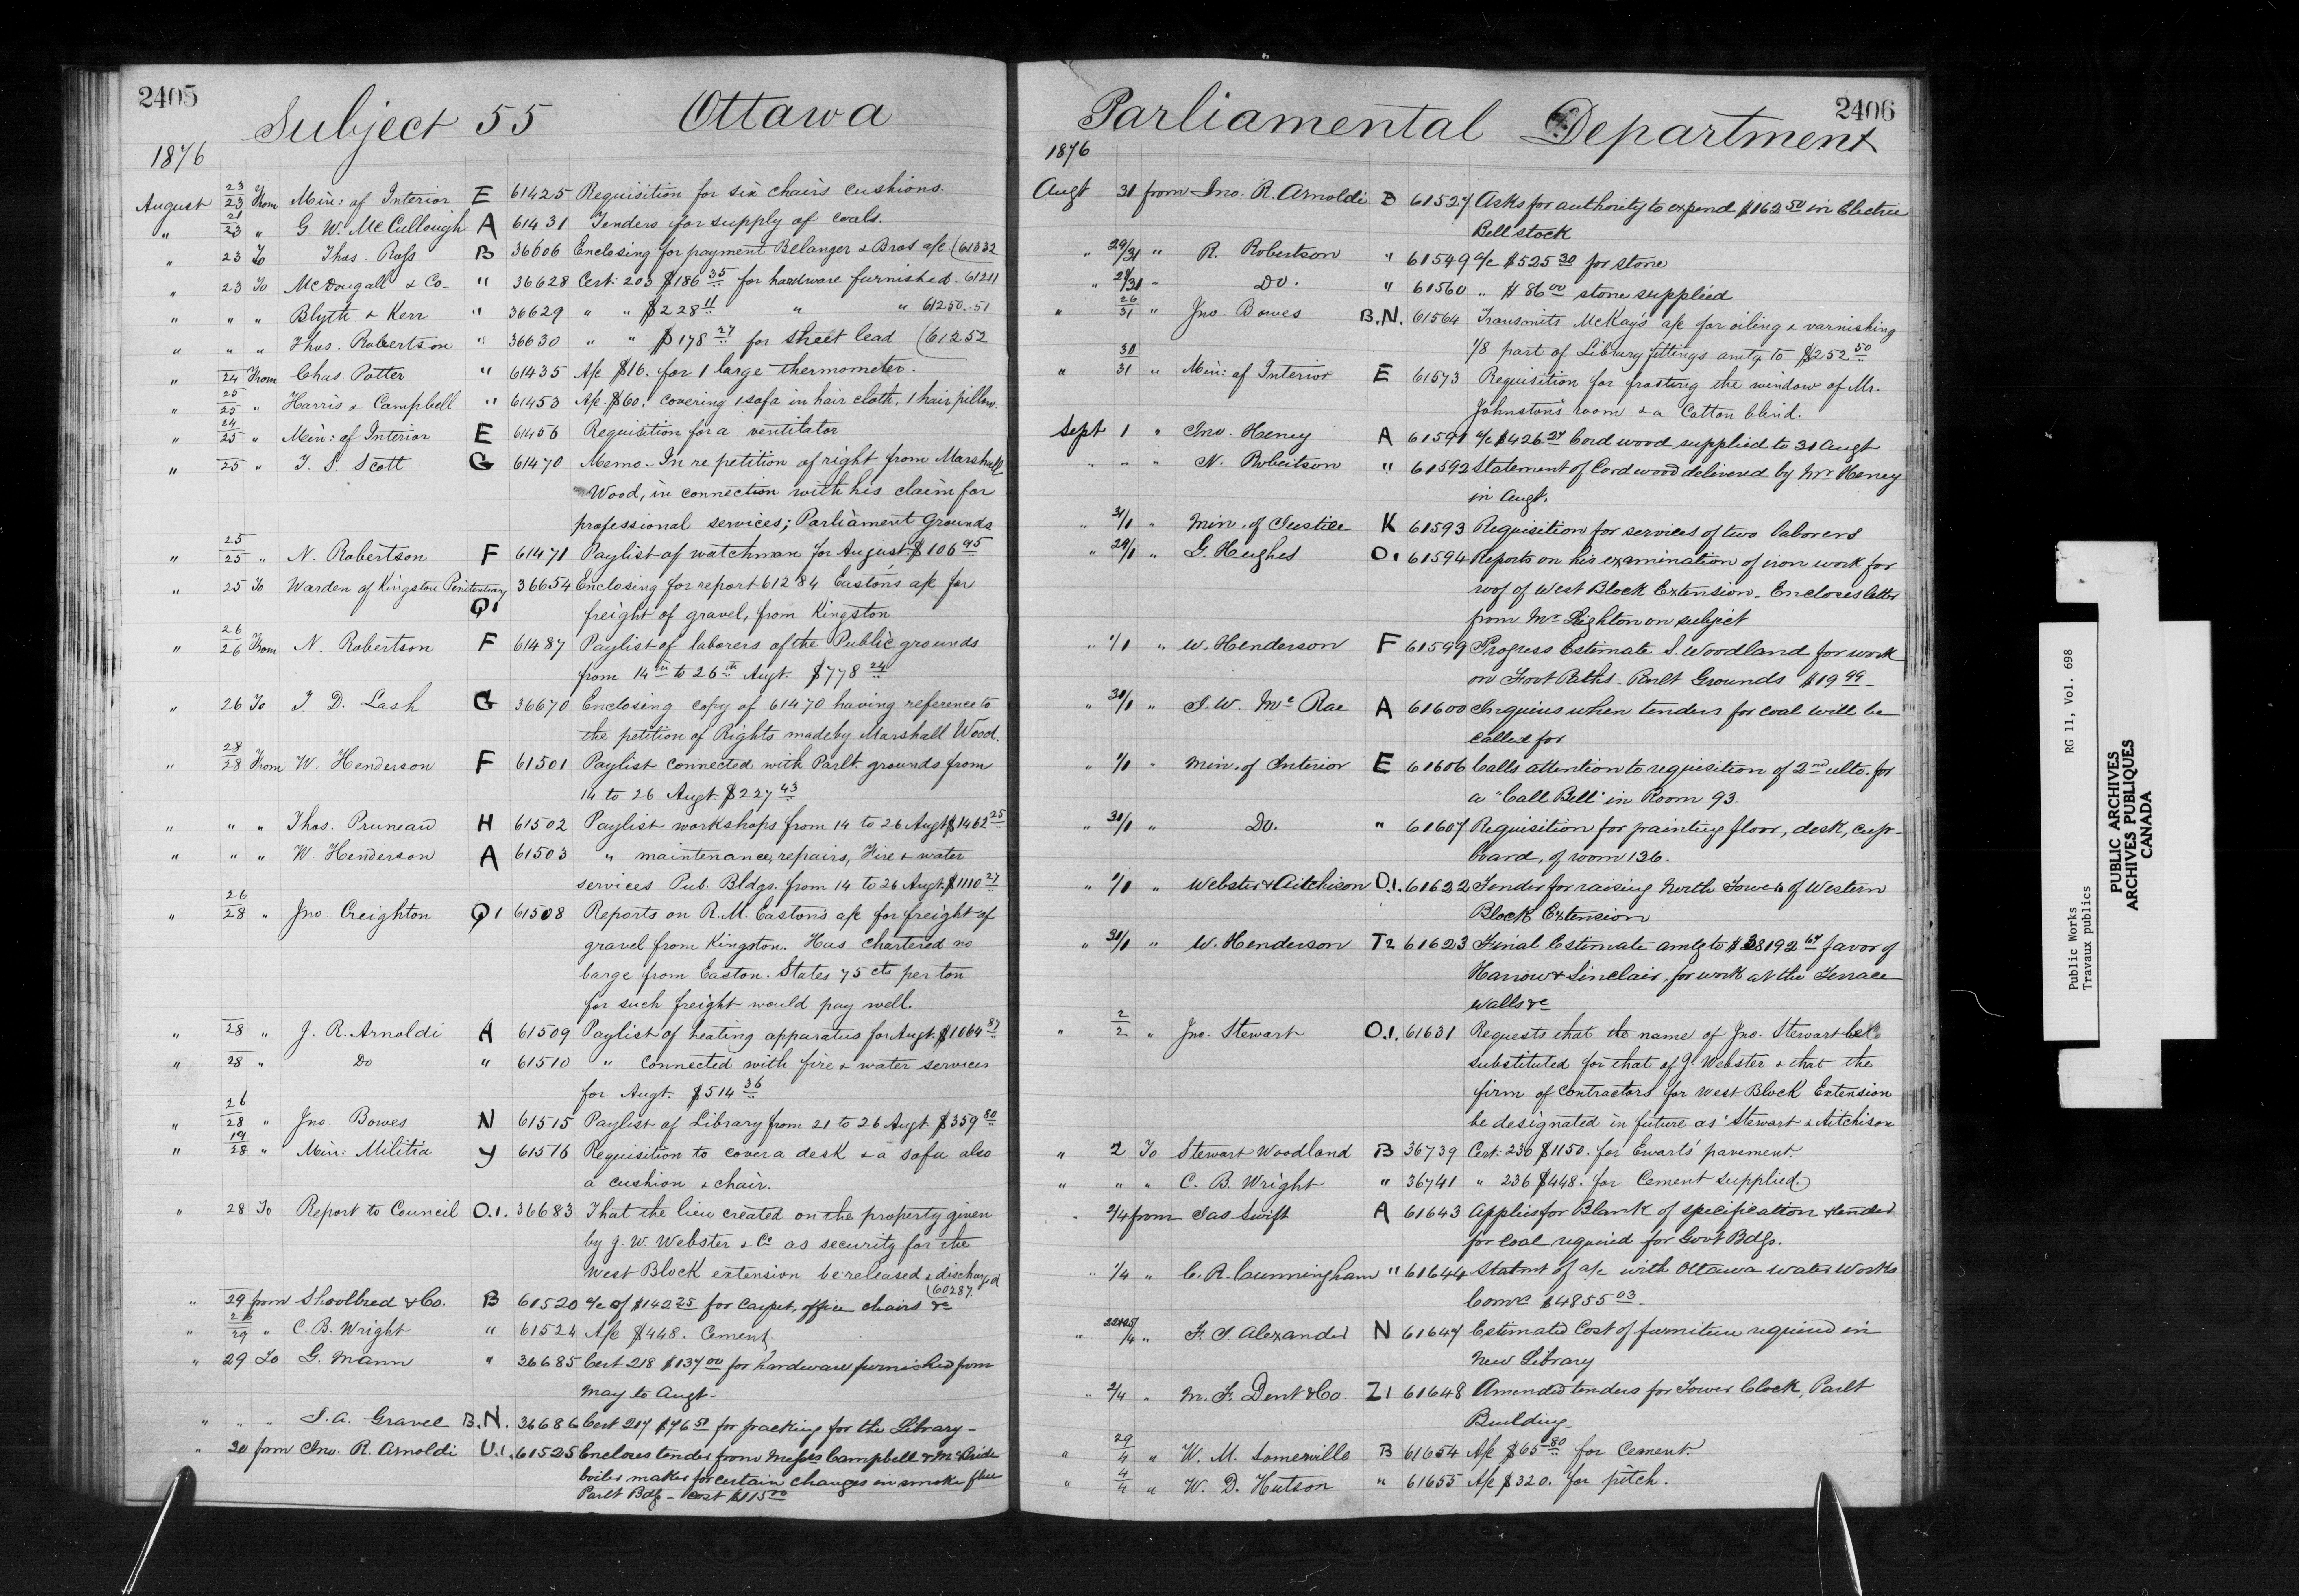 2405
Subject 55 Ottawa
1876
August 23/23 From Min: of Interior E 61425 Requisition for six chairs cushions.
" 21/23 " G. W. McCullough A 61431 Tenders for supply of coals.
" 23 To Thos. Ross B 36606 Enclosing for payment Belanger & Bros a/c (61332
" 23 To McDougall & Co- " 36628 Cert: 203 $186 35 for hardware furnished. 61211
" " " Blyth & Kerr " 36629 " " $228 11 " " 61250.51
" " " Thos. Robertson " 36630 " " $178 27 for sheet lead (61252
" 24 From Chas. Potter " 61435 A/c $16. for 1 large thermometer.
" 25/25 " Harris & Campbell " 61453 A/c. $60. covering 1 sofa in hair cloth, 1 hair pillow.
" 24/25 " Min: of Interior E 61456 Requisition for a ventilator
" 25 " T. S. Scott G 61470 Memo - In re petition of right from Marshall
Wood, in connection with his claim for
professional services; Parliament Grounds
" 25/25 " N. Robertson F 61471 Paylist of watchman for August $106 95
" 25 To Warden of Kingston Penitentiary Q1 36654 Enclosing for report 61284 Easton's a/c for
freight of gravel, from Kingston
" 26/26 From N. Robertson F 61487 Paylist of laborers of the Public grounds
from 14th to 26th Augt. $778 24
" 26 To Z. D. Lash G 36670 Enclosing copy of 61470 having reference to
the petition of Rights made by Marshall Wood.
" 28/28 From W. Henderson F 61501 Paylist connected with Parlt. grounds from
14 to 26 Augt. $227 43
" " " Thos. Pruneau H 61502 Paylist workshops from 14 to 26 Augt $1462 25
" " " W. Henderson A 61503 " maintenance, repairs, Fire & water
services Pub. Bldgs. from 14 to 26 Augt. $1110 27
" 26/28 " Jno. Creighton Q1 61508 Reports on R. M. Easton's a/c for freight of
gravel from Kingston. Has chartered no
barge from Easton. States 75 cts per ton
for such freight would pay well.
" 28 " J. R. Arnoldi A 61509 Paylist of heating apparatus for Augt. $1064 87
" 28 " Do " 61510 " connected with fire & water services
for Augt. $514 36
" 26/28 " Jno. Bowes N 61515 Paylist of Library from 21 to 26 Augt. $359 50
" 19/28 " Min: Militia Y 61516 Requisition to cover a desk & a sofa also
a cushion & chair.
" 28 To Report to Council O.1. 36683 That the lien created on the property given
by J. W. Webster & Co as security for the
West Block extension be released & discharged
(60287.
" 29 from Shoolbred & Co. B 61520 a/c of $142 25 for carpet, office chairs &c
" 28/29 " C. B. Wright " 61524 A/c $448. Cement.
" 29 To G. Mann " 36685 Cert 218 $137 00 for hardware furnished from
May to Augt.
" " " J. A. Gravel B.N. 36686 Cert 217 $76 50 for packing for the Library-
" 30 from Jno. R. Arnoldi U.1. 61525 Encloses tender from Messrs Campbell & McBride
boiler maker for certain changes in smoke flue
Parlt Bdg - cost $115 00
2406
Parliamental Department
1876
Augt 31 from Jno. R. Arnoldi B 61527 Asks for authority to expend $162 50 in Electric
Bell stock
" 29/31 " R. Robertson " 61549 a/c $525 30 for stone
" 29/31 " Do. " 61560 " $86 00 stone supplied
" 26/31 " Jno Bowes B.N. 61564 Transmits McKay's a/c for oiling & varnishing
1/8 part of Library fittings amtg to $252 50
" 30/31 " Min: of Interior E 61573 Requisition for frosting the window of Mr.
Johnston's room & a Cotton blind.
Sept 1 " Jno. Heney A 61591 a/c $426 27 Cord wood supplied to 31 Augt
" " " N. Robertson " 61592 Statement of Cord wood delivered by Mr Heney
in Augt.
" 31/1 " Min. of Justice K 61593 Requisition for services of two laborers
" 29/1 " G. Hughes O. 61594 Reports on his examination of iron work for
roof of West Block Extension. Encloses letter
from Mr Leighton on subject
" 1/1 " W. Henderson F 61599 Progress Estimate S. Woodland for work
on Foot Paths - Parlt Grounds $19 99 -
" 30/1 " J. W. McRae A 61600 Inquires when tenders for coal will be
called for
" 1/1 " Min. of Interior E 61606 Calls attention to requisition of 2nd ulto. for
a "Call Bell" in Room 93.
" 30/1 " Do. " 61607 Requisition for painting floor, desk, cup-
board, of room 136.
" 1/1 " Webster & Aitchison O.1. 61622 Tender for raising North Tower of Western
Block Extension
" 31/1 " W. Henderson T2 61623 Final Estimate amtg to $38192 67 favor of
Hanow & Sinclair, for work at the Terrace
walls &c
" 2/2 " Jno. Stewart O.1. 61631 Requests that the name of Jno. Stewart be
substituted for that of J. Webster & that the
firm of contractors for West Block Extension
be designated in future as 'Stewart & Aitchison
" 2 To Stewart Woodland B 36739 Cert: 230 $1150. for Ewart's' pavement.
" " " C. B. Wright " 36741 " 236 $448. for Cement supplied.
" 2/4 from Jas Swift A 61643 Applies for Blank of specification & tender
for coal required for Govt Bdgs.
" 1/4 " C. R. Cunningham " 61644 Statmt of a/c with Ottawa Water Works
Comrs $4855 03 -
" 22&25/4 " F. J. Alexander N 61647 Estimated Cost of furniture required in
New Library
" 2/4 " M. F. Dent & Co. Z1 61648 Amended tenders for Tower Clock, Parlt
Building -
" 29/4 " W. M. Somerville B 61654 A/c $65 80 for Cement.
" 4/4 " W. D. Hutson " 61655 A/c $320. for pitch.
Public Works RG 11, Vol. 698
Travaux publics
PUBLIC ARCHIVES
ARCHIVES PUBLIQUES
CANADA